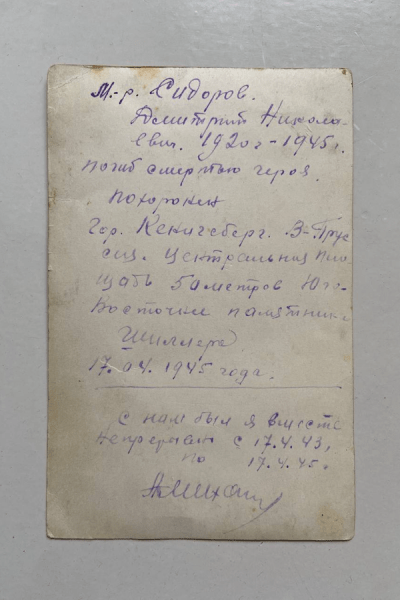 М.-р. Сидоров.
Дмитрий Никола-
евич. 1920г - 1945г.
погиб смертью героя.
похоронен
гор. Кенигсберг. В-Прус
сия. Центральная пло
щадь 50 метров Юго-
Восточнее памятника
Шиллера
17.04.1945 года.
С ним был я вместе
непрерывно с 17.4.43,
по 17.4.45.